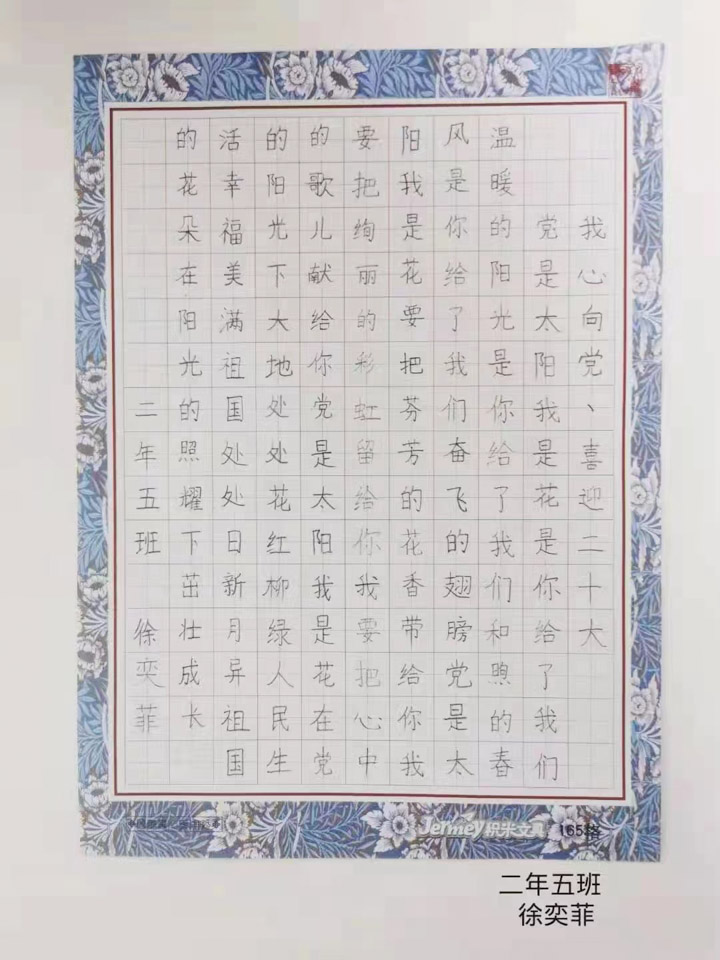 我心向党、喜迎二十大
党是太阳我是花是你给了我们
温暖的阳光是你给了我们和煦的春
风是你给了我们奋飞的翅膀党是太
阳我是花要把芬芳的花香带给你我
要把绚丽的彩虹留给你我要把心中
的歌儿献给你党是太阳我是花在党
的阳光下大地处处花红柳绿人民生
活幸福美满祖国处处日新月异祖国
的花朵在阳光的照耀下茁壮成长
二年五班 徐奕菲
Jermey积米文具 165格
二年五班
徐奕菲